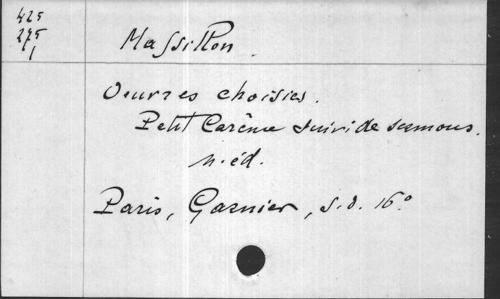 425
275
1
Massillon.
Oeuvres choisies.
Petit Carême suivi de sermons.
n. éd.
Paris, Garnier, s.d. 16°